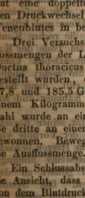 eine doppelte
en Druckwechsel
enblutes in be
Drei Versuchs
ussmengen der L
uctus thoracicus
estellt wurden,
7,8 und 185,5 G
nem Kilogramm
ahl wurde an ein
e dritte an einem
ewonnen. Beweg
e Ausflussmenge.
Ein Schlussabs
e Ansicht, dass
on dem Blutdruck